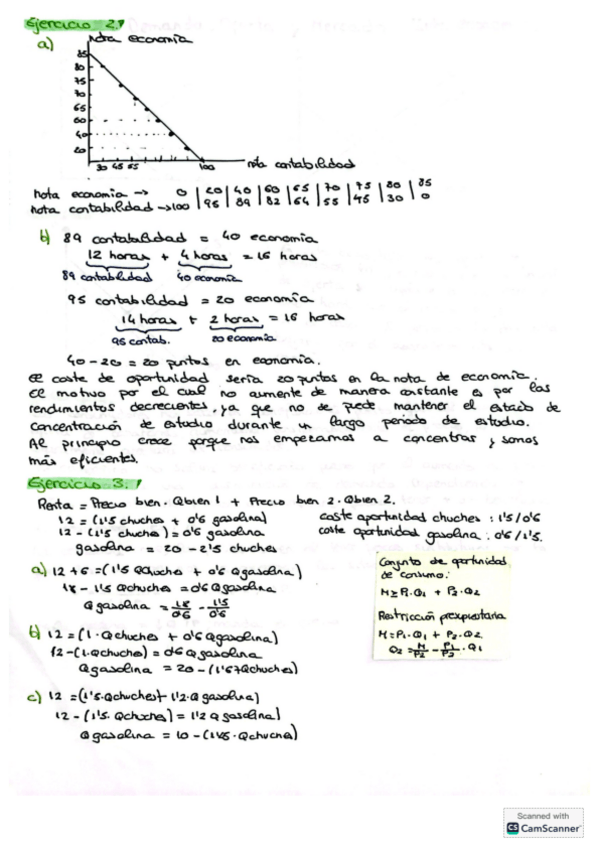 Ejercicio 2.
a)
nota economía
85
80
75
70
65
60
40
20
30 45 65 100
nota contabilidad
nota economía -> 0 | 20 | 40 | 60 | 65 | 70 | 75 | 80 | 85
nota contabilidad -> 100 | 95 | 89 | 82 | 64 | 55 | 45 | 30 | 0
b) 89 contabilidad = 40 economía
12 horas + 4 horas = 16 horas
89 contabilidad 40 economía
95 contabilidad = 20 economía
14 horas + 2 horas = 16 horas
95 contab. 20 economía
40 - 20 = 20 puntos en economía.
El coste de oportunidad sería 20 puntos en la nota de economía.
El motivo por el cual no aumente de manera constante es por los
rendimientos decrecientes, ya que no se puede mantener el estado de
concentración de estudio durante un largo periodo de estudio.
Al principio crece porque nos empezamos a concentrar y somos
más eficientes.
Ejercicio 3.
Renta = Precio bien 1 · Qbien 1 + Precio bien 2 · Qbien 2.
12 = (1'5 chuches + 0'6 gasolina)
12 - (1'5 chuches) = 0'6 gasolina
gasolina = 20 - 2'5 chuches
coste oportunidad chuches : 1'5/0'6
coste oportunidad gasolina : 0'6/1'5.
a) 12 + 6 = (1'5 Qchuches + 0'6 Qgasolina)
18 - 1'5 Qchuches = 0'6 Qgasolina
Qgasolina = 18/0'6 - 1'5/0'6
b) 12 = (1 · Qchuches + 0'6 Qgasolina)
12 - (1 · Qchuches) = 0'6 Qgasolina
Qgasolina = 20 - (1'67 Qchuches)
c) 12 = (1'5 · Qchuches + 1'2 · Qgasolina)
12 - (1'5 · Qchuches) = 1'2 Qgasolina)
Qgasolina = 10 - (1'25 · Qchuches)
Conjunto de oportunidad
de consumo:
M ≥ P1 · Q1 + P2 · Q2
Restricción presupuestaria
M = P1 · Q1 + P2 · Q2
Q2 = M/P2 - P1/P2 · Q1
Scanned with
CS CamScanner